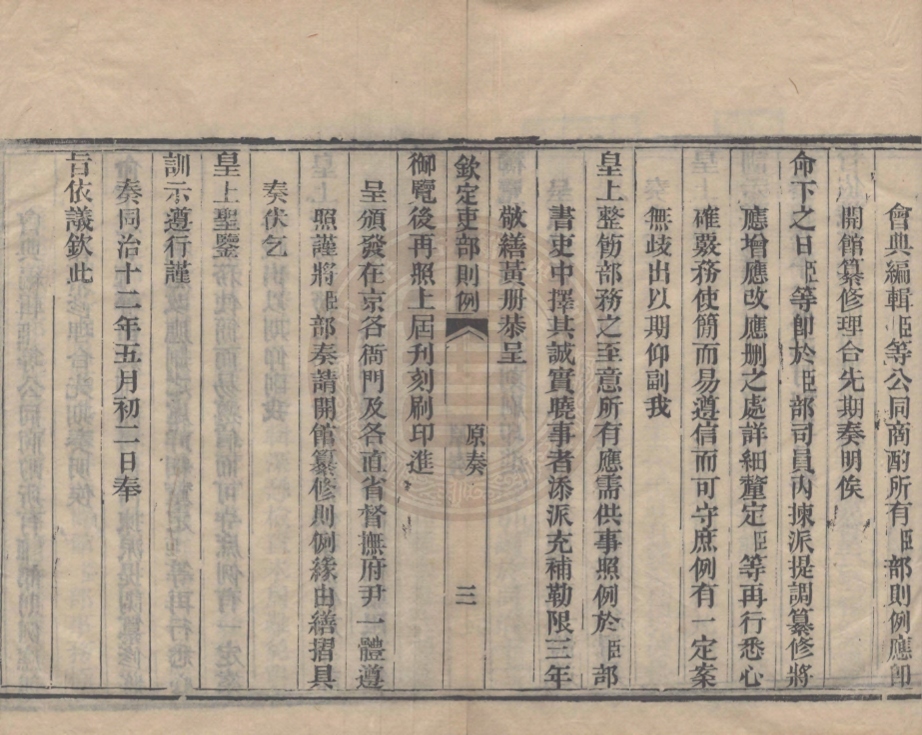 會典編輯臣等公同商酌所有臣部則例應卽
開館纂修理合先期奏明俟
命下之日臣等卽於臣部司員內揀派提調纂修將
應增應改應刪之處詳細釐定臣等再行悉心
確覈務使簡而易遵信而可守庶例有一定案
無歧出以期仰副我
皇上整飭部務之至意所有應需供事照例於臣部
書吏中擇其誠實曉事者添派充補勒限三年
敬繕黃册恭呈
欽定吏部則例 原奏 三
御覽後再照上屆刊刻刷印進
呈頒發在京各衙門及各直省督撫府尹一體遵
照謹將臣部奏請開館纂修則例緣由繕摺具
奏伏乞
皇上聖鑒
訓示遵行謹
奏同治十二年五月初二日奉
旨依議欽此